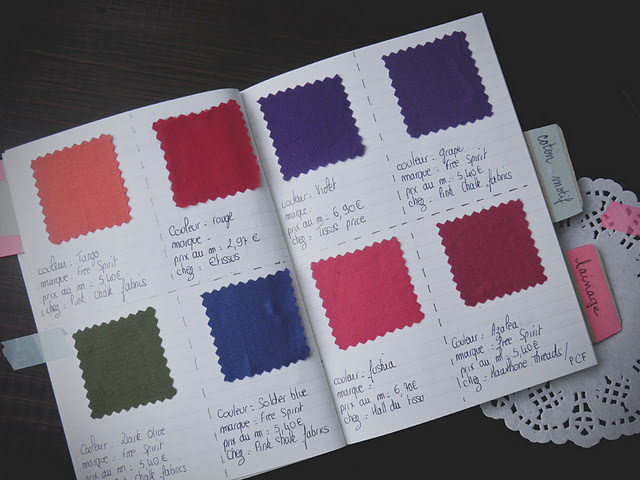 couleur: Tango
marque: Free Spirit
prix au m = 5,40€
chez: Pink Chalk fabrics
Couleur = rouge
marque:
prix au m = 2,97 €
chez = etissus
Couleur = Dark Olive
marque = Free Spirit
prix au m = 5,40€
chez = Pink Chalk fabrics
Couleur = Solder blue
marque = Free Spirit
prix au m = 5,40€
chez = Pink Chalk fabrics
couleur = Violet
marque:
prix au m = 6,90€
chez = Tissus price
couleur = grape
marque = Free Spirit
prix au m = 5,40€
chez = Pink Chalk fabrics
couleur = fushia
marque =
prix au m = 6,90€
chez = Hall du tissu
Couleur = Azalea
marque = Free Spirit
prix au m = 5,40€
chez = Hawthorne threads/
PCF
coton motif
lainage